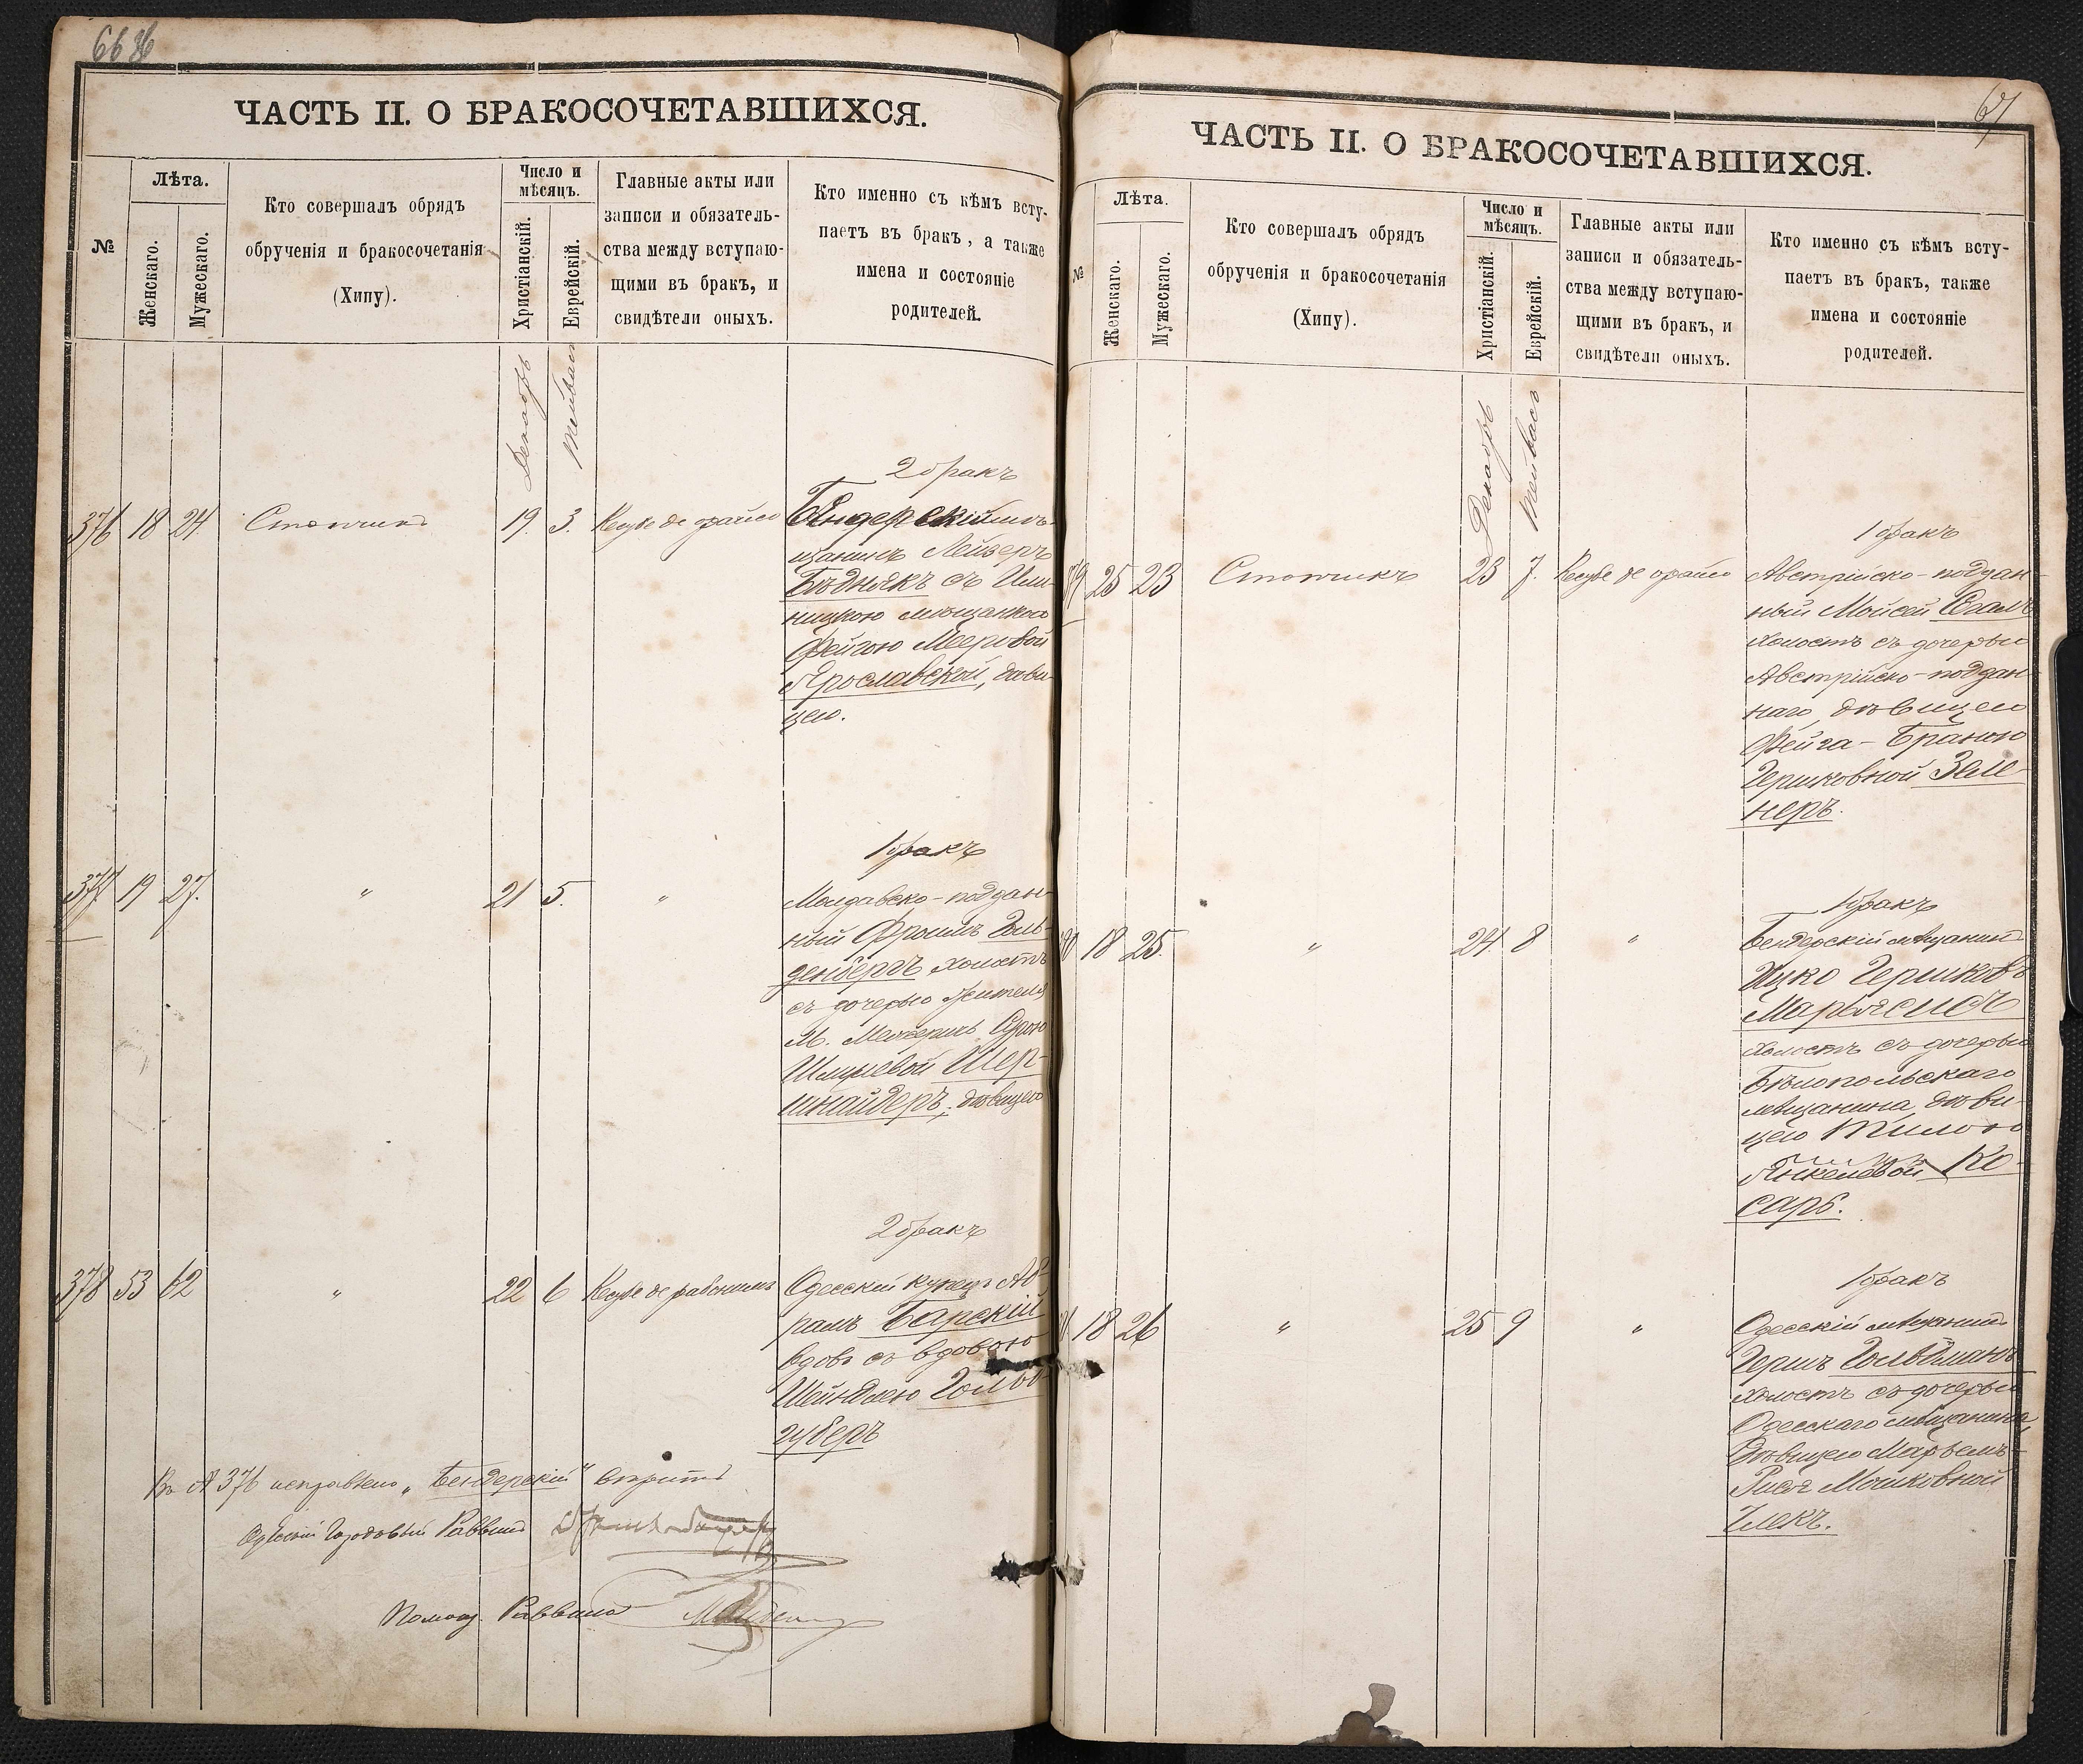 66
ЧАСТЬ II. О БРАКОСОЧЕТАВШИХСЯ.
№
Лѣта.
Женскаго.
Мужескаго.
Кто совершалъ обрядъ
обрученія и бракосочетанія
(Хипу).
Число и
мѣсяцъ.
Христіанскій.
Еврейскій.
Главные акты или
записи и обязатель-
ства между вступаю-
щими въ бракъ, и
свидѣтели оныхъ.
Кто именно съ кѣмъ всту-
паетъ въ бракъ, а также
имена и состояніе
родителей.
Декабрь
Тейвасъ
2 бракъ
376 18 24. Столчикъ 19. 3. Ксубе де орайсо Бендерскій мѣ-
щанинъ Лейзеръ
Бѣднякъ съ
ницкою мѣщанкою
Фейгою Мееровой
Ярославской, дѣви-
цею.
1 бракъ
377 19 27. " 21 5. " Молдавско-поддан-
ный Фроимъ Голь-
денбергъ холостъ
съ дочерью жителя
м. Сурою
Шмулевой Шер-
шнайдеръ, дѣвицею
2 бракъ
378 53 62 " 22 6 Ксубе де рабонимъ Одесскій купецъ Аб-
рамъ Барскій
вдовъ съ вдовою
Шейндлею Гольд-
губеръ
Въ № 376 исправлено „Бендерскій" вѣрить
Одесскій Городовый Раввинъ
Помощ. Раввина
67
ЧАСТЬ II. О БРАКОСОЧЕТАВШИХСЯ.
№
Лѣта.
Женскаго.
Мужескаго.
Кто совершалъ обрядъ
обрученія и бракосочетанія
(Хипу).
Число и
мѣсяцъ.
Христіанскій.
Еврейскій.
Главные акты или
записи и обязатель-
ства между вступаю-
щими въ бракъ, и
свидѣтели оныхъ.
Кто именно съ кѣмъ всту-
паетъ въ бракъ, также
имена и состояніе
родителей.
Декабрь
Тейвасъ
1 бракъ
79 25 23 Столчикъ 23 7. Ксубе де орайсо Австрійско-поддан-
ный Мойсей
холостъ съ дочерью
Австрійско-поддан-
наго, дѣвицею
Фейга-Браною
Гершковной Зель-
неръ.
1 бракъ
80 18 25. " 24. 8 " Бендерскій мѣщанинъ
Ицко Гершковъ
Марьясисъ
холостъ съ дочерью
Бѣлопольскаго
мѣщанина, дѣви-
цею
Янкелевой Ко-
сарь.
1 бракъ
81 18 26 " 25 9 " Одесскій мѣщанинъ
Гершъ Гольдманъ
холостъ съ дочерью
Одесскаго мѣщанина,
дѣвицею Марьемъ-
Рисе Мошковной